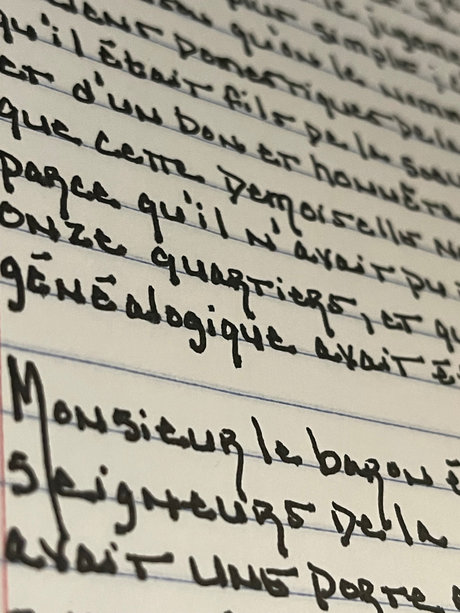 le jugem
simple;
qu'on le nomm
domestiques de la
qu'il était fils de la sœu
et d'un bon et honnête
que cette demoiselle n
parce qu'il n'avait pu
onze quartiers, et qu
généalogique avait é
Monsieur le baron é
seigneurs de la
avait une porte